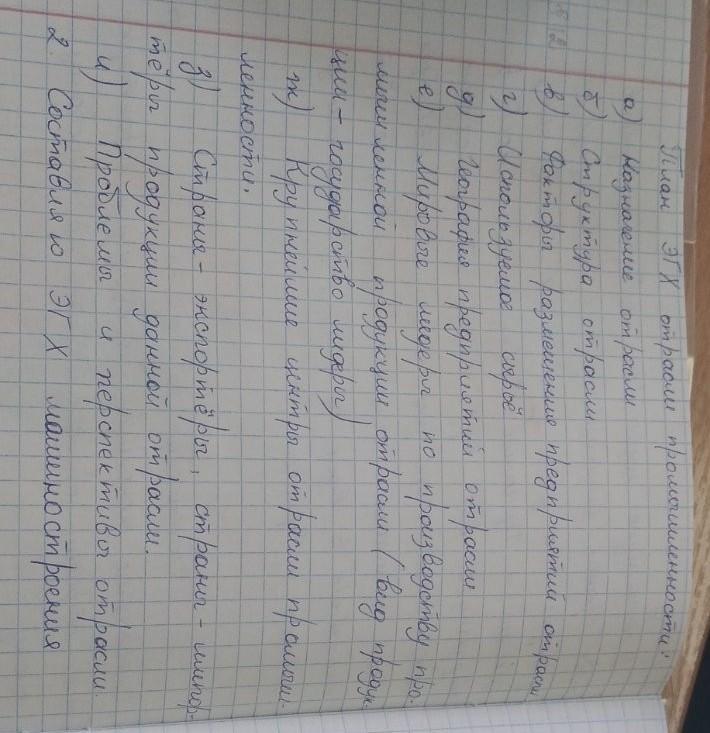 План ЭГХ отрасли промышленности:
а) Назначение отрасли
б) Структура отрасли
в) Факторы размещение предприятий отрасли
г) Используемое сырьё
д) География предприятий отрасли
е) Мировые лидеры по производству про-
мышленной продукции отрасли (вид продук-
ции - государство лидеры)
ж) Крупнейшие центры отрасли промыш-
ленности.
з) Страны - экспортёры, страны - импор-
тёры продукции данной отрасли.
и) Проблемы и перспективы отрасли.
2. Составляю ЭГХ машиностроения